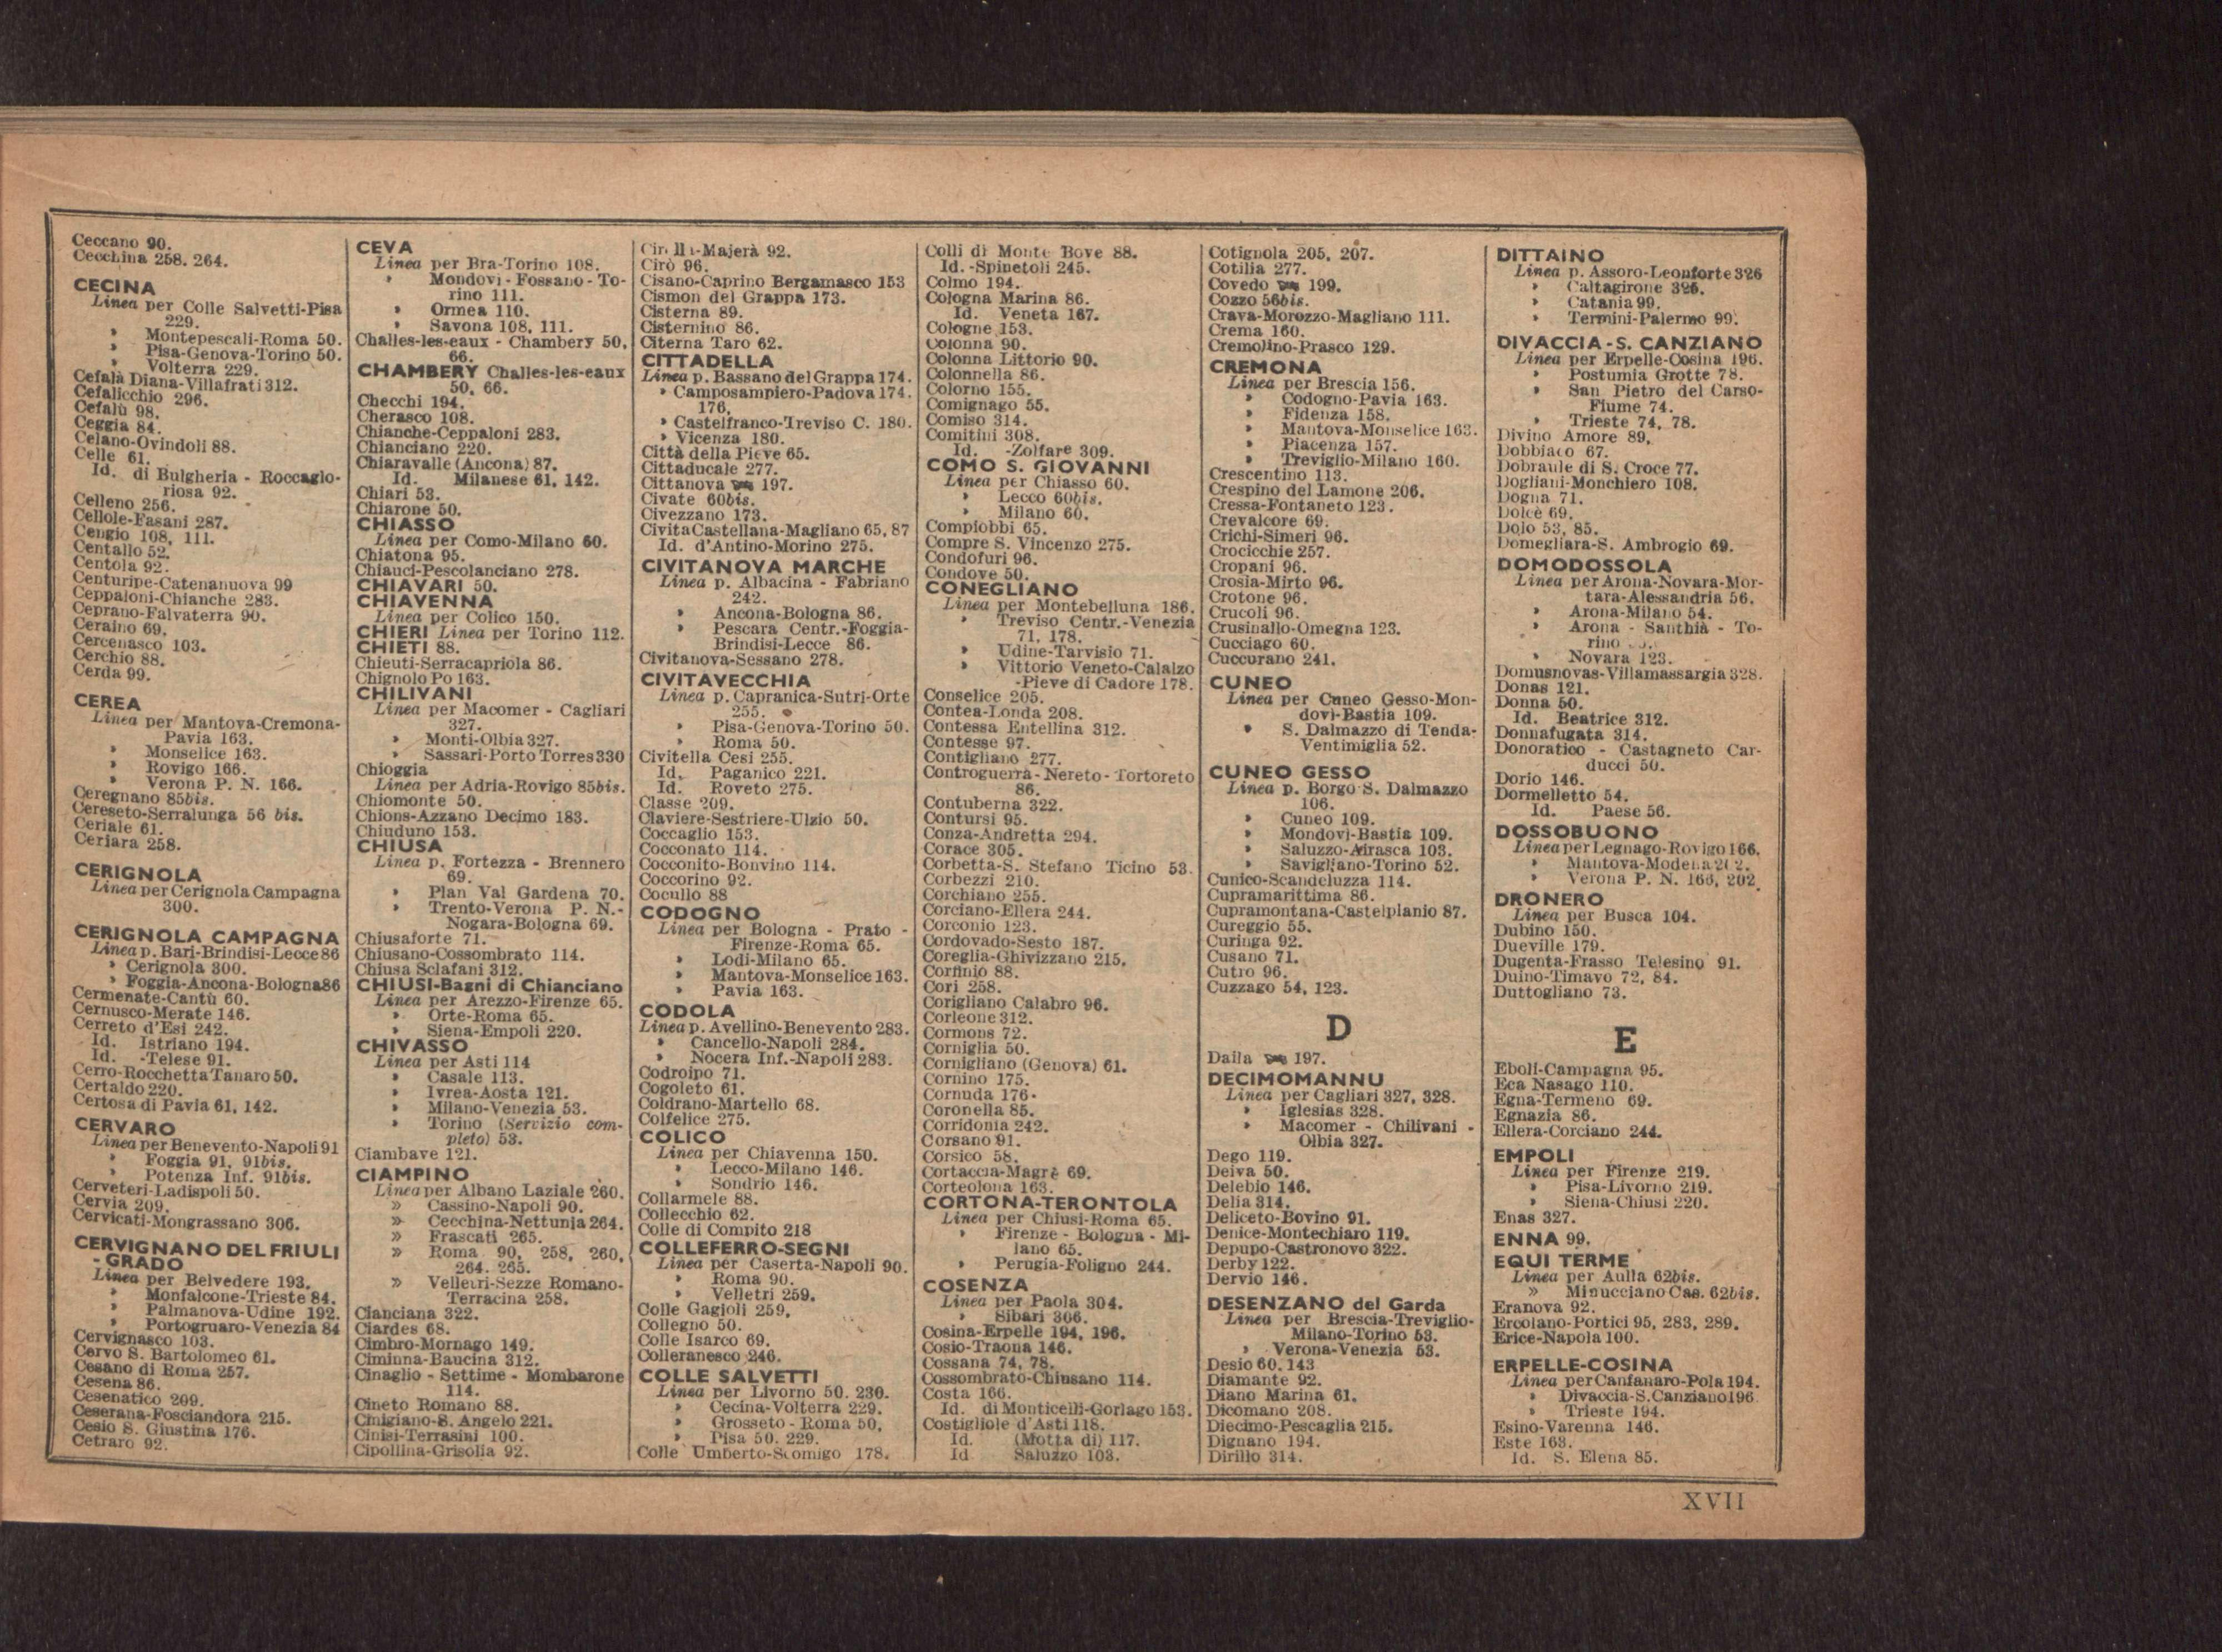 Ceccano 90.
Cecchina 258. 264.
CECINA
Linea per Colle Salvetti-Pisa
229.
» Montepescali-Roma 50.
» Pisa-Genova-Torino 50.
» Volterra 229.
Cefalà Diana-Villafrati 312.
Cefalicchio 296.
Cefalù 98.
Ceggia 84.
Celano-Ovindoli 88.
Celle 61.
Id. di Bulgheria - Roccaglo-
riosa 92.
Celleno 256.
Cellole-Fasani 287.
Cengio 108, 111.
Centallo 52.
Centola 92.
Centuripe-Catenanuova 99
Ceppaloni-Chianche 283.
Ceprano-Falvaterra 90.
Ceraino 69.
Cercenasco 103.
Cerchio 88.
Cerda 99.
CEREA
Linea per Mantova-Cremona-
Pavia 163.
» Monselice 163.
» Rovigo 166.
» Verona P. N. 166.
Ceregnano 85bis.
Cereseto-Serralunga 56 bis.
Ceriale 61.
Ceriara 258.
CERIGNOLA
Linea per Cerignola Campagna
300.
CERIGNOLA CAMPAGNA
Linea p. Bari-Brindisi-Lecce 86
» Cerignola 300.
» Foggia-Ancona-Bologna 86
Cermenate-Cantù 60.
Cernusco-Merate 146.
Cerreto d'Esi 242.
Id. Istriano 194.
Id. -Telese 91.
Cerro-Rocchetta Tanaro 50.
Certaldo 220.
Certosa di Pavia 61, 142.
CERVARO
Linea per Benevento-Napoli 91
» Foggia 91, 91bis.
» Potenza Inf. 91bis.
Cerveteri-Ladispoli 50.
Cervia 209.
Cervicati-Mongrassano 306.
CERVIGNANO DEL FRIULI
- GRADO
Linea per Belvedere 193.
» Monfalcone-Trieste 84.
» Palmanova-Udine 192.
» Portogruaro-Venezia 84
Cervignasco 103.
Cervo S. Bartolomeo 61.
Cesano di Roma 257.
Cesena 86.
Cesenatico 209.
Ceserana-Fosciandora 215.
Cesio S. Giustina 176.
Cetraro 92.
CEVA
Linea per Bra-Torino 108.
» Mondovì - Fossano - To-
rino 111.
» Ormea 110.
» Savona 108, 111.
Challes-les-eaux - Chambery 50,
66.
CHAMBERY Challes-les-eaux
50, 66.
Checchi 194.
Cherasco 108.
Chianche-Ceppaloni 283.
Chianciano 220.
Chiaravalle (Ancona) 87.
Id. Milanese 61, 142.
Chiari 53.
Chiarone 50.
CHIASSO
Linea per Como-Milano 60.
Chiatona 95.
Chiauci-Pescolanciano 278.
CHIAVARI 50.
CHIAVENNA
Linea per Colico 150.
CHIERI Linea per Torino 112.
CHIETI 88.
Chieuti-Serracapriola 86.
Chignolo Po 163.
CHILIVANI
Linea per Macomer - Cagliari
327.
» Monti-Olbia 327.
» Sassari-Porto Torres 330
Chioggia
Linea per Adria-Rovigo 85bis.
Chiomonte 50.
Chions-Azzano Decimo 183.
Chiuduno 153.
CHIUSA
Linea p. Fortezza - Brennero
69.
» Plan Val Gardena 70.
» Trento-Verona P. N.-
Nogara-Bologna 69.
Chiusaforte 71.
Chiusano-Cossombrato 114.
Chiusa Sclafani 312.
CHIUSI-Bagni di Chianciano
Linea per Arezzo-Firenze 65.
» Orte-Roma 65.
» Siena-Empoli 220.
CHIVASSO
Linea per Asti 114
» Casale 113.
» Ivrea-Aosta 121.
» Milano-Venezia 53.
» Torino (Servizio com-
pleto) 53.
Ciambave 121.
CIAMPINO
Linea per Albano Laziale 260.
» Cassino-Napoli 90.
» Cecchina-Nettunia 264.
» Frascati 265.
» Roma 90, 258, 260,
264. 265.
» Velletri-Sezze Romano-
Terracina 258.
Cianciana 322.
Ciardes 68.
Cimbro-Mornago 149.
Ciminna-Baucina 312.
Cinaglio - Settime - Mombarone
114.
Cineto Romano 88.
Cinigiano-S. Angelo 221.
Cinisi-Terrasini 100.
Cipollina-Grisolia 92.
-Majerà 92.
Cirò 96.
Cisano-Caprino Bergamasco 153
Cismon del Grappa 173.
Cisterna 89.
Cisternino 86.
Citerna Taro 62.
CITTADELLA
Linea p. Bassano del Grappa 174.
» Camposampiero-Padova 174.
176.
» Castelfranco-Treviso C. 180.
» Vicenza 180.
Città della Pieve 65.
Cittaducale 277.
Cittanova 197.
Civate 60bis.
Civezzano 173.
Civita Castellana-Magliano 65, 87
Id. d'Antino-Morino 275.
CIVITANOVA MARCHE
Linea p. Albacina - Fabriano
242.
» Ancona-Bologna 86.
» Pescara Centr.-Foggia-
Brindisi-Lecce 86.
Civitanova-Sessano 278.
CIVITAVECCHIA
Linea p. Capranica-Sutri-Orte
255.
» Pisa-Genova-Torino 50.
» Roma 50.
Civitella Cesi 255.
Id. Paganico 221.
Id. Roveto 275.
Classe 209.
Claviere-Sestriere-Ulzio 50.
Coccaglio 153.
Cocconato 114.
Cocconito-Bonvino 114.
Coccorino 92.
Cocullo 88
CODOGNO
Linea per Bologna - Prato -
Firenze-Roma 65.
» Lodi-Milano 65.
» Mantova-Monselice 163.
» Pavia 163.
CODOLA
Linea p. Avellino-Benevento 283.
» Cancello-Napoli 284.
» Nocera Inf.-Napoli 283.
Codroipo 71.
Cogoleto 61.
Coldrano-Martello 68.
Colfelice 275.
COLICO
Linea per Chiavenna 150.
» Lecco-Milano 146.
» Sondrio 146.
Collarmele 88.
Collecchio 62.
Colle di Compito 218
COLLEFERRO-SEGNI
Linea per Caserta-Napoli 90.
» Roma 90.
» Velletri 259.
Colle Gagioli 259.
Collegno 50.
Colle Isarco 69.
Colleranesco 246.
COLLE SALVETTI
Linea per Livorno 50. 230.
» Cecina-Volterra 229.
» Grosseto - Roma 50,
» Pisa 50. 229.
Colle Umberto-Scomigo 178.
Colli di Monte Bove 88.
Id. -Spinetoli 245.
Colmo 194.
Cologna Marina 86.
Id. Veneta 167.
Cologne 153.
Colonna 90.
Colonna Littorio 90.
Colonnella 86.
Colorno 155.
Comignago 55.
Comiso 314.
Comitini 308.
Id. -Zolfare 309.
COMO S. GIOVANNI
Linea per Chiasso 60.
» Lecco 60bis.
» Milano 60.
Compiobbi 65.
Compre S. Vincenzo 275.
Condofuri 96.
Condove 50.
CONEGLIANO
Linea per Montebelluna 186.
» Treviso Centr.-Venezia
71, 178.
» Udine-Tarvisio 71.
» Vittorio Veneto-Calalzo
-Pieve di Cadore 178.
Conselice 205.
Contea-Londa 208.
Contessa Entellina 312.
Contesse 97.
Contigliano 277.
Controguerra - Nereto - Tortoreto
86.
Contuberna 322.
Contursi 95.
Conza-Andretta 294.
Corace 305.
Corbetta-S. Stefano Ticino 53.
Corbezzi 210.
Corchiano 255.
Corciano-Ellera 244.
Corconio 123.
Cordovado-Sesto 187.
Coreglia-Ghivizzano 215.
Corfinio 88.
Cori 258.
Corigliano Calabro 96.
Corleone 312.
Cormons 72.
Corniglia 50.
Cornigliano (Genova) 61.
Cornino 175.
Cornuda 176.
Coronella 85.
Corridonia 242.
Corsano 91.
Corsico 58.
Cortaccia-Magrè 69.
Corteolona 163.
CORTONA-TERONTOLA
Linea per Chiusi-Roma 65.
» Firenze - Bologna - Mi-
lano 65.
» Perugia-Foligno 244.
COSENZA
Linea per Paola 304.
» Sibari 306.
Cosina-Erpelle 194, 196.
Cosio-Traona 146.
Cossana 74, 78.
Cossombrato-Chiusano 114.
Costa 166.
Id. di Monticelli-Gorlago 153.
Costigliole d'Asti 118.
Id. (Motta di) 117.
Id Saluzzo 103.
Cotignola 205, 207.
Cotilia 277.
Covedo 199.
Cozzo 56bis.
Crava-Morozzo-Magliano 111.
Crema 160.
Cremolino-Prasco 129.
CREMONA
Linea per Brescia 156.
» Codogno-Pavia 163.
» Fidenza 158.
» Mantova-Monselice 163.
» Piacenza 157.
» Treviglio-Milano 160.
Crescentino 113.
Crespino del Lamone 206.
Cressa-Fontaneto 123.
Crevalcore 69.
Crichi-Simeri 96.
Crocicchie 257.
Cropani 96.
Crosia-Mirto 96.
Crotone 96.
Crucoli 96.
Crusinallo-Omegna 123.
Cucciago 60.
Cuccurano 241.
CUNEO
Linea per Cuneo Gesso-Mon-
dovì-Bastia 109.
» S. Dalmazzo di Tenda-
Ventimiglia 52.
CUNEO GESSO
Linea p. Borgo S. Dalmazzo
106.
» Cuneo 109.
» Mondovì-Bastia 109.
» Saluzzo-Airasca 103.
» Savigliano-Torino 52.
Cunico-Scandeluzza 114.
Cupramarittima 86.
Cupramontana-Castelplanio 87.
Cureggio 55.
Curinga 92.
Cusano 71.
Cutro 96.
Cuzzago 54, 123.
D
Daila 197.
DECIMOMANNU
Linea per Cagliari 327, 328.
» Iglesias 328.
» Macomer - Chilivani -
Olbia 327.
Dego 119.
Deiva 50.
Delebio 146.
Delia 314.
Deliceto-Bovino 91.
Denice-Montechiaro 119.
Depupo-Castronovo 322.
Derby 122.
Dervio 146.
DESENZANO del Garda
Linea per Brescia-Treviglio-
Milano-Torino 53.
» Verona-Venezia 53.
Desio 60. 143
Diamante 92.
Diano Marina 61.
Dicomano 208.
Diecimo-Pescaglia 215.
Dignano 194.
Dirillo 314.
DITTAINO
Linea p. Assoro-Leonforte 326
» Caltagirone 326.
» Catania 99.
» Termini-Palermo 99.
DIVACCIA - S. CANZIANO
Linea per Erpelle-Cosina 196.
» Postumia Grotte 78.
» San Pietro del Carso-
Fiume 74.
» Trieste 74, 78.
Divino Amore 89.
Dobbiaco 67.
Dobraule di S. Croce 77.
Dogliani-Monchiero 108.
Dogna 71.
Dolcè 69.
Dolo 53, 85.
Domegliara-S. Ambrogio 69.
DOMODOSSOLA
Linea per Arona-Novara-Mor-
tara-Alessandria 56.
» Arona-Milano 54.
» Arona - Santhià - To-
rino
» Novara 123.
Domusnovas-Villamassargia 328.
Donas 121.
Donna 50.
Id. Beatrice 312.
Donnafugata 314.
Donoratico - Castagneto Car-
ducci 50.
Dorio 146.
Dormelletto 54.
Id. Paese 56.
DOSSOBUONO
Linea per Legnago-Rovigo 166.
» Mantova-Modena 202.
» Verona P. N. 166, 202
DRONERO
Linea per Busca 104.
Dubino 150.
Dueville 179.
Dugenta-Frasso Telesino 91.
Duino-Timavo 72, 84.
Duttogliano 73.
E
Eboli-Campagna 95.
Eca Nasago 110.
Egna-Termeno 69.
Egnazia 86.
Ellera-Corciano 244.
EMPOLI
Linea per Firenze 219.
» Pisa-Livorno 219.
» Siena-Chiusi 220.
Enas 327.
ENNA 99.
EQUI TERME
Linea per Aulla 62bis.
» Minucciano Cas. 62bis.
Eranova 92.
Ercolano-Portici 95, 283, 289.
Erice-Napola 100.
ERPELLE-COSINA
Linea per Canfanaro-Pola 194.
» Divaccia-S. Canziano 196
» Trieste 194.
Esino-Varenna 146.
Este 163.
Id. S. Elena 85.
XVII